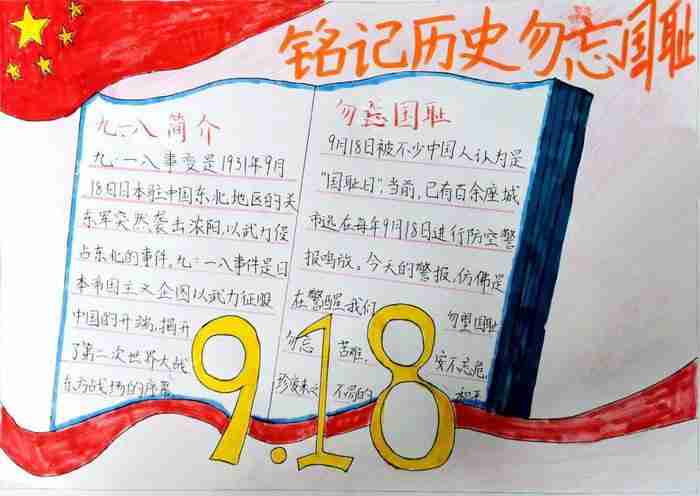 铭记历史勿忘国耻
九·一八简介
九·一八事变是1931年9月
18日日本驻中国东北地区的关
东军突然袭击沈阳,以武力侵
占东北的事件。九·一八事件是日
本帝国主义企图以武力征服
中国的开端,揭开
了第二次世界大战
东方战场的序幕
勿忘国耻
9月18日被不少中国人认为是
"国耻日",当前,已有百余座城
市选在每年9月18日进行防空警
报鸣放。今天的警报,仿佛是
在警醒我们 勿忘国耻
勿忘 苦难, 安不忘危,
珍 来之 不易的 和平
9.18